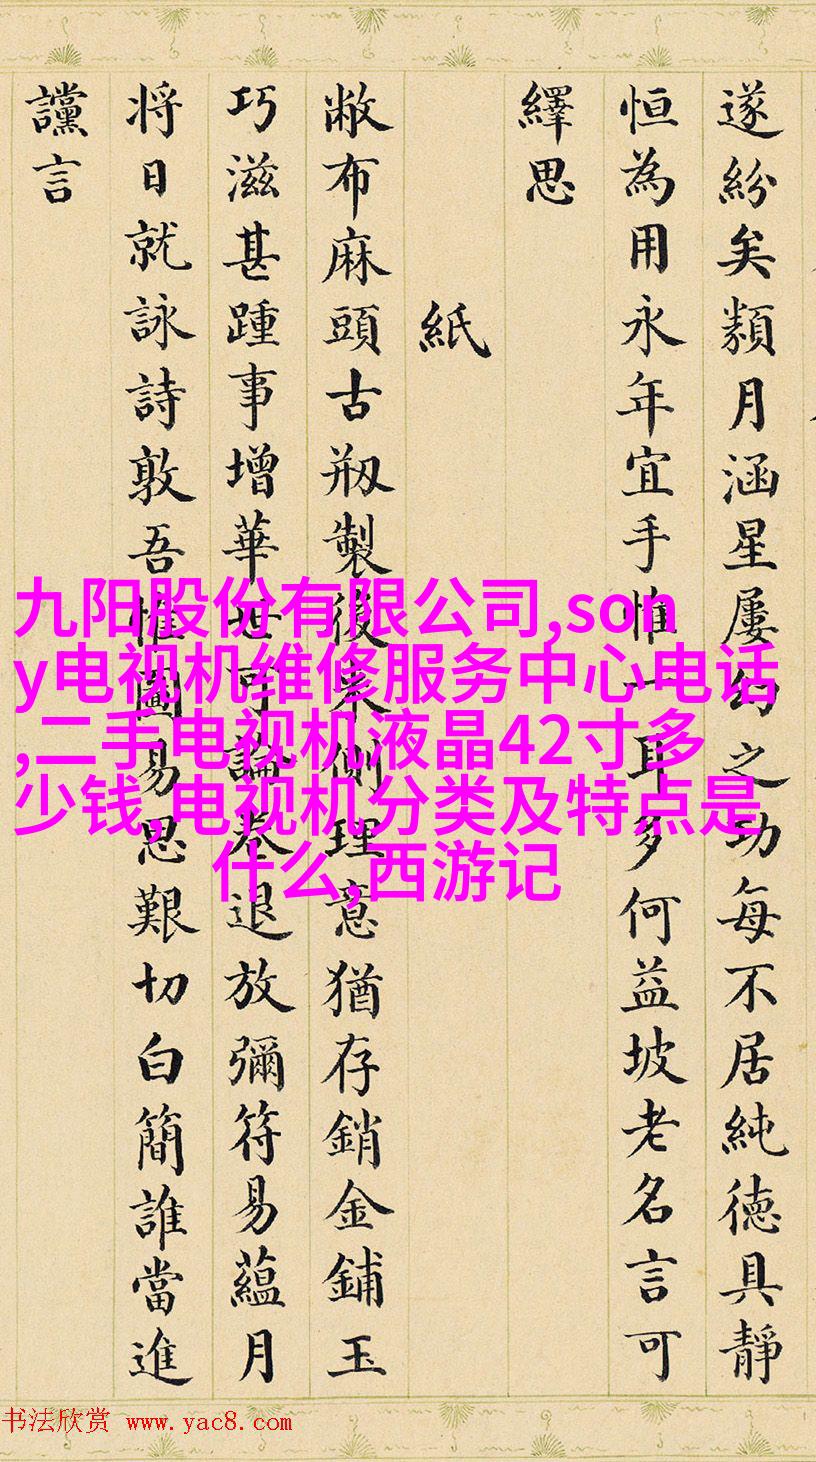 遂紛矣纇月涵星屢幻之功每不居純德具靜
恒為用永年宜手惟一耳多何益坡老名言可
繹思
紙
敝布麻頭古剏製後來側理意猶存銷金鋪玉
巧滋甚踵事增華世可論卷退放彌符易蘊月
将日就詠詩敦吾惟圖易思艱切白簡誰當進
讜言
九阳股份有限公司,son
y电视机维修服务中心电话
,二手电视机液晶42寸多
少钱,电视机分类及特点是
什么,西游记
书法欣赏 www.yac8.com